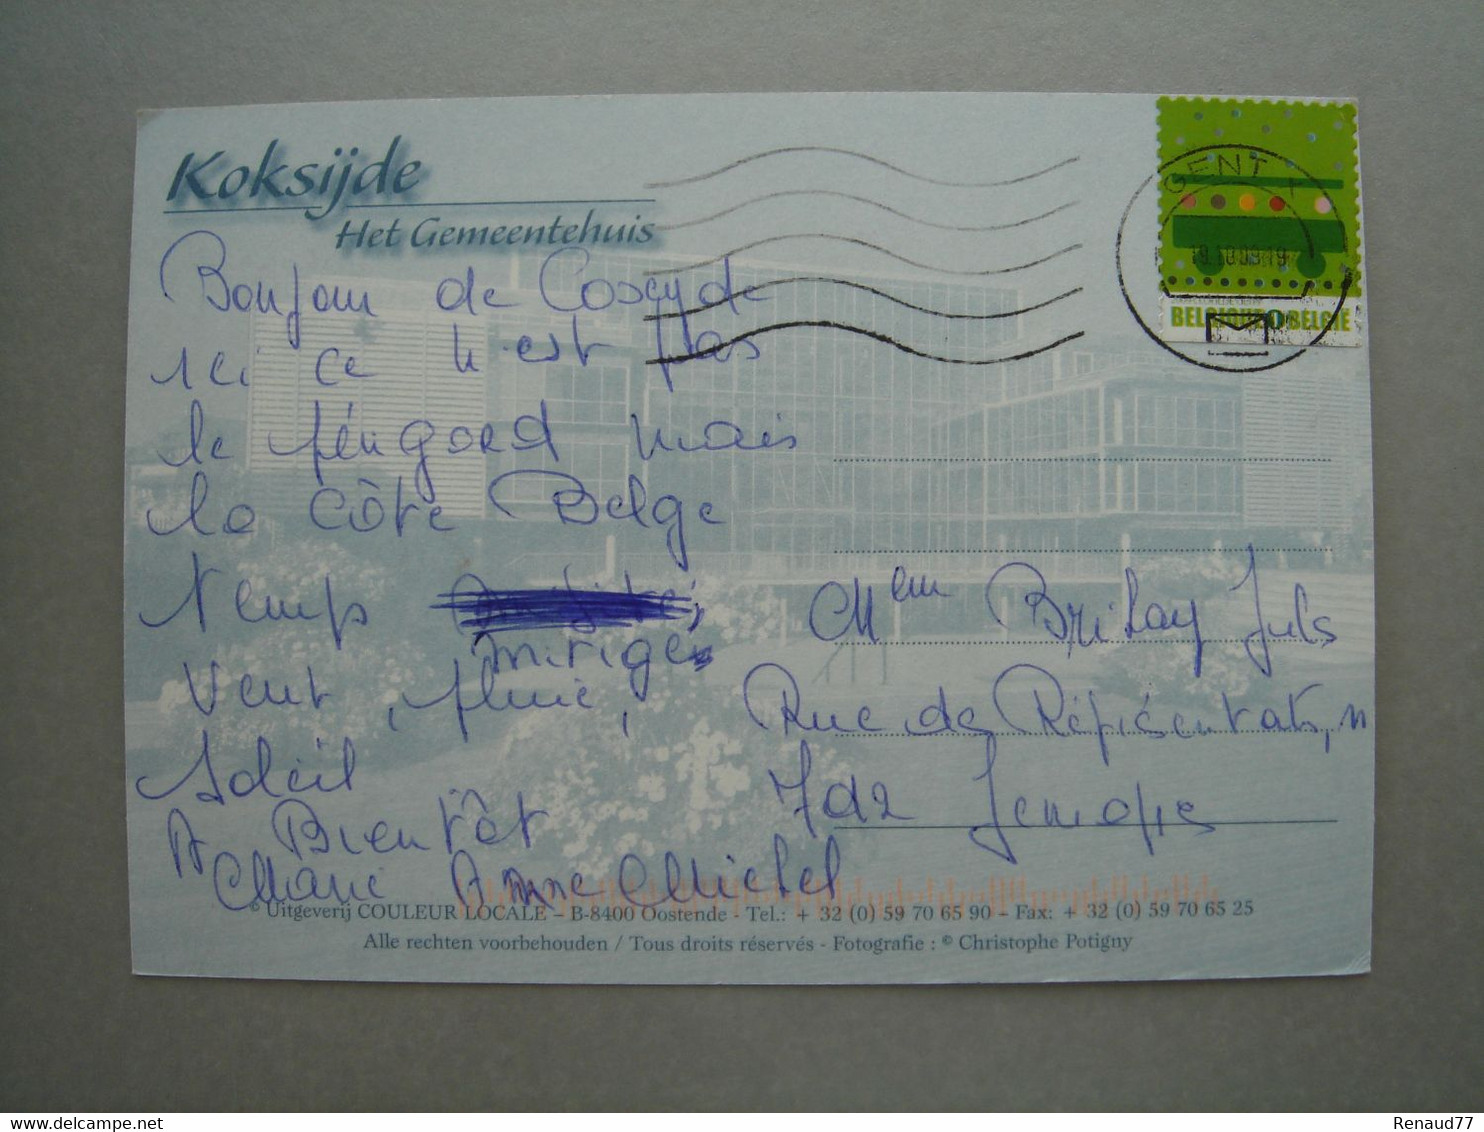 Koksijde
Het Gemeentehuis
GENT X
19 10 09 19
BELGIQUE 1 BELGIË
Bonjour de Coxyde
ici ce n'est pas
le Périgord mais
la Côte Belge
Temps
mitigé,
Vent, pluie,
Soleil
A Bientôt
Marie Anne Michel
Mem Brilay Juls
Rue des Représentants, 11
7012 Jemappes
© Uitgeverij COULEUR LOCALE – B-8400 Oostende - Tel.: + 32 (0) 59 70 65 90 – Fax: + 32 (0) 59 70 65 25
Alle rechten voorbehouden / Tous droits réservés - Fotografie : © Christophe Potigny
Renaud77